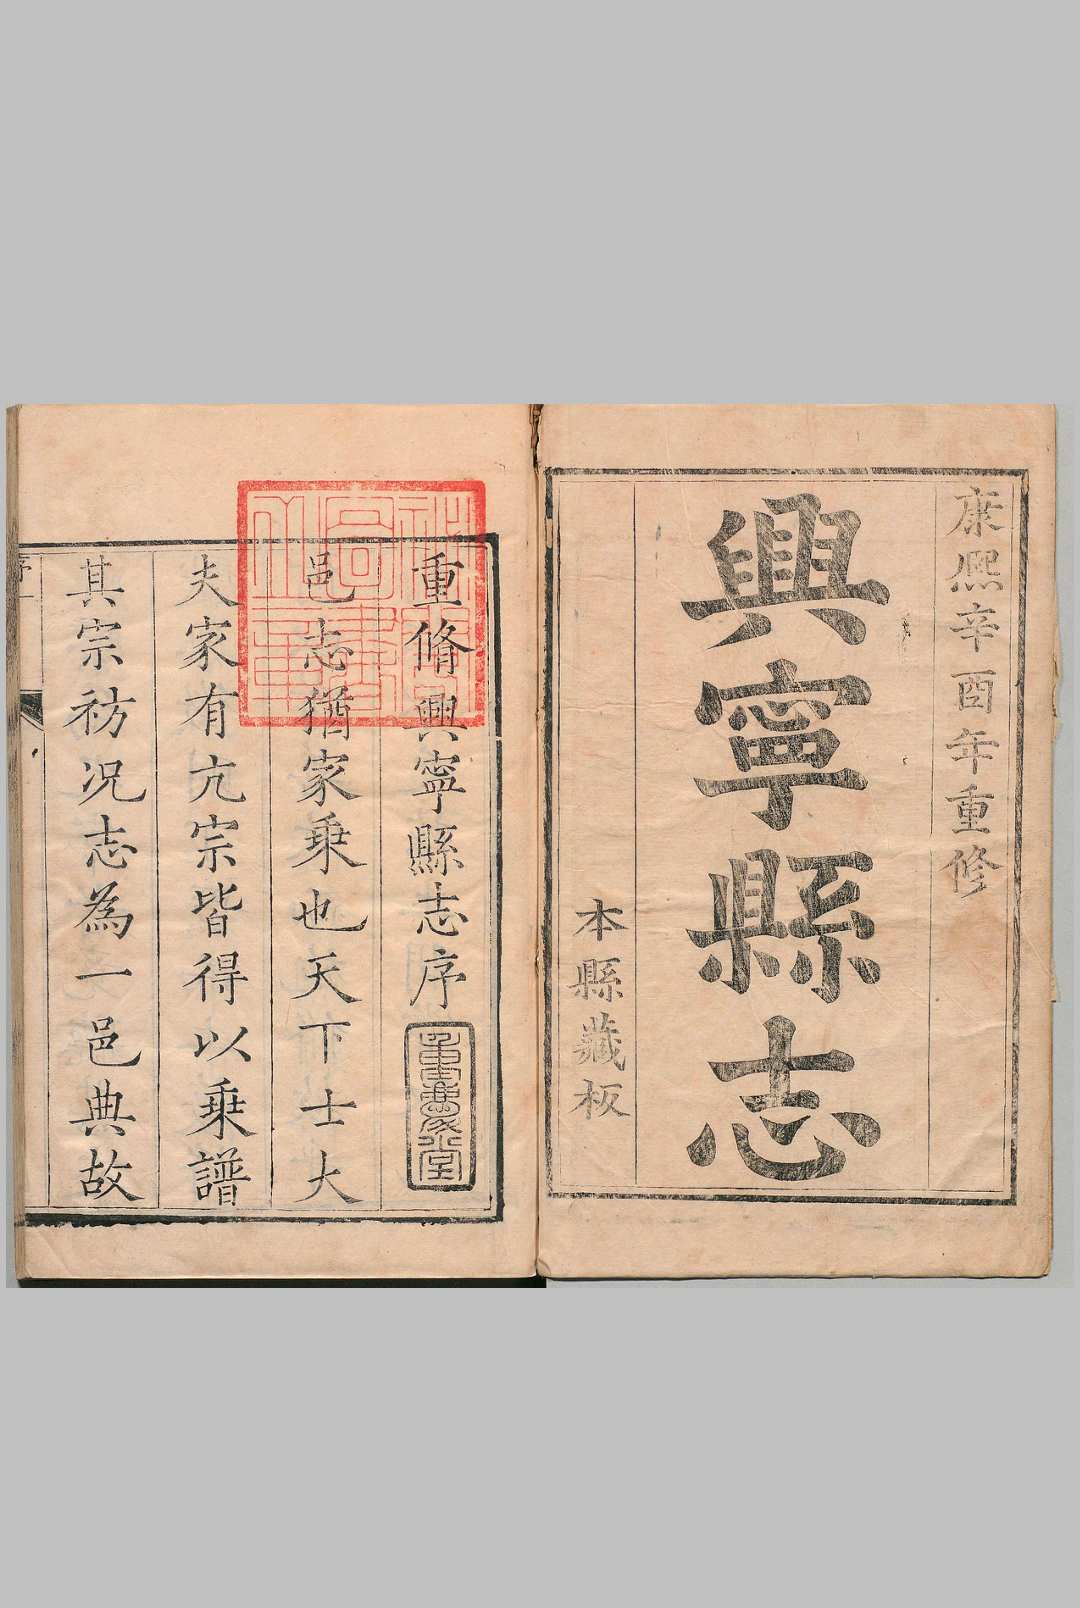 康熙辛酉年重修
興寧縣志
本縣藏板
重脩興寧縣志序
邑志猶家乘也天下士大
夫家有亢宗皆得以乘譜
其宗祊况志為一邑典故
序
一